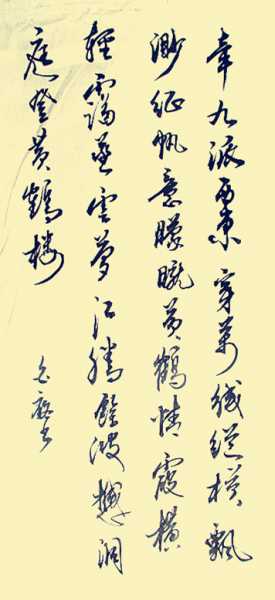 牵九派西东穿万线纵横飘
渺征帆意朦胧黄鹤情霞横
轻霭蒸云梦江腾余波撼洞
庭登黄鹤楼